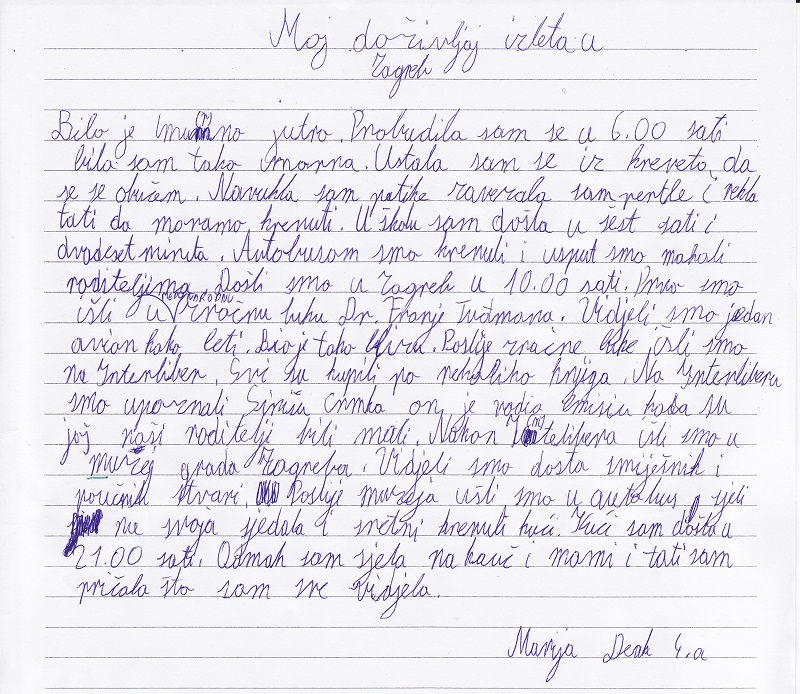 Moj doživljaj izleta u
Zagreb
Bilo je tmurno jutro. Probudila sam se u 6.00 sati
bila sam tako umorna. Ustala sam se iz kreveta, da
se se obučem. Navukla sam patike zavezala sam pertle i rekla
tati da moramo krenuti. U školu sam došla u šest sati i
dvadeset minuta. Autobusom smo krenuli i usput smo mahali
roditeljima. Došli smo u Zagreb u 10.00 sati. Prvo smo
išli u MEĐUNARODNU zračnu luku Dr. Franje Tuđmana. Vidjeli smo jedan
avion kako leti. Bio je tako. Poslije zračne luke išli smo
na Interliber. Svi su kupili po nekoliko knjiga. Na Interliberu
smo upoznali Sinišu Cmrka on je radio emisiu kada su
još naši roditelji bili mali. Nakon Intelibera išli smo u
muzej grada Zagreba. Vidjeli smo dosta smiješnih i
poučnih stvari. Poslije muzeja ušli smo u autobus, sjeli
na svoja sjedala i sretni krenuli kući. Kući sam došla u
21.00 sati. Odmah sam sjela na kauč i mami i tati sam
pričala što sam sve vidjela.
Marija Deak 4.a